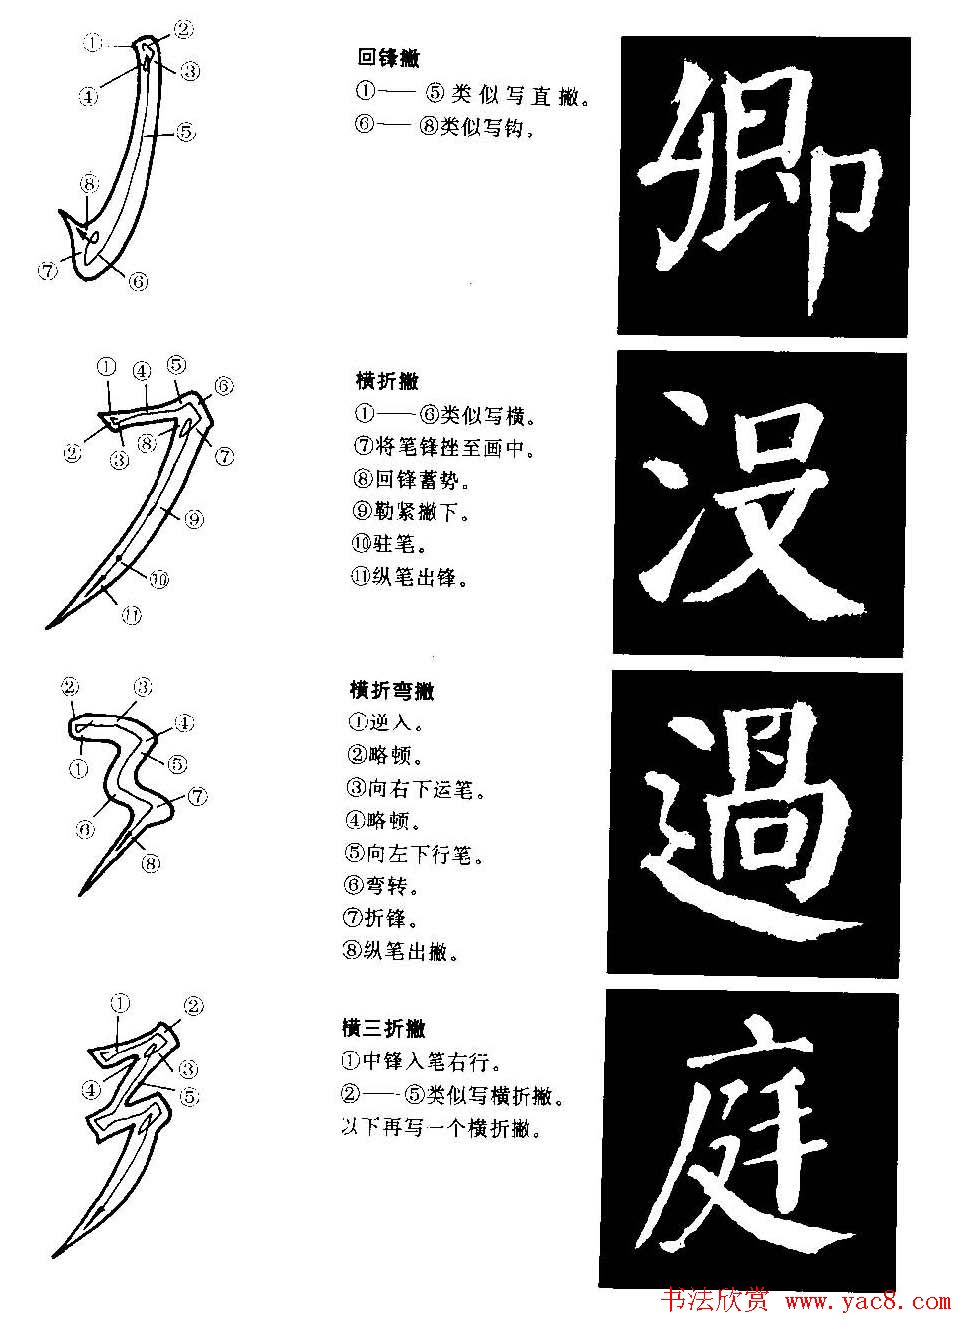 ①
②
③
④
⑤
⑧
⑦
⑥
回锋撇
①—— ⑤类似写直撇。
⑥—— ⑧类似写钩。
卿
①
④
⑤
⑥
②
③
⑧
⑦
⑨
⑩
⑪
横折撇
①——⑥类似写横。
⑦将笔锋挫至画中。
⑧回锋蓄势。
⑨勒紧撇下。
⑩驻笔。
⑪纵笔出锋。
没
②
③
④
①
⑤
⑦
⑥
⑧
横折弯撇
①逆入。
②略顿。
③向右下运笔。
④略顿。
⑤向左下行笔。
⑥弯转。
⑦折锋。
⑧纵笔出撇。
過
①
②
③
④
⑤
横三折撇
①中锋入笔右行。
②——⑤类似写横折撇。
以下再写一个横折撇。
庭
书法欣赏 www.yac8.com